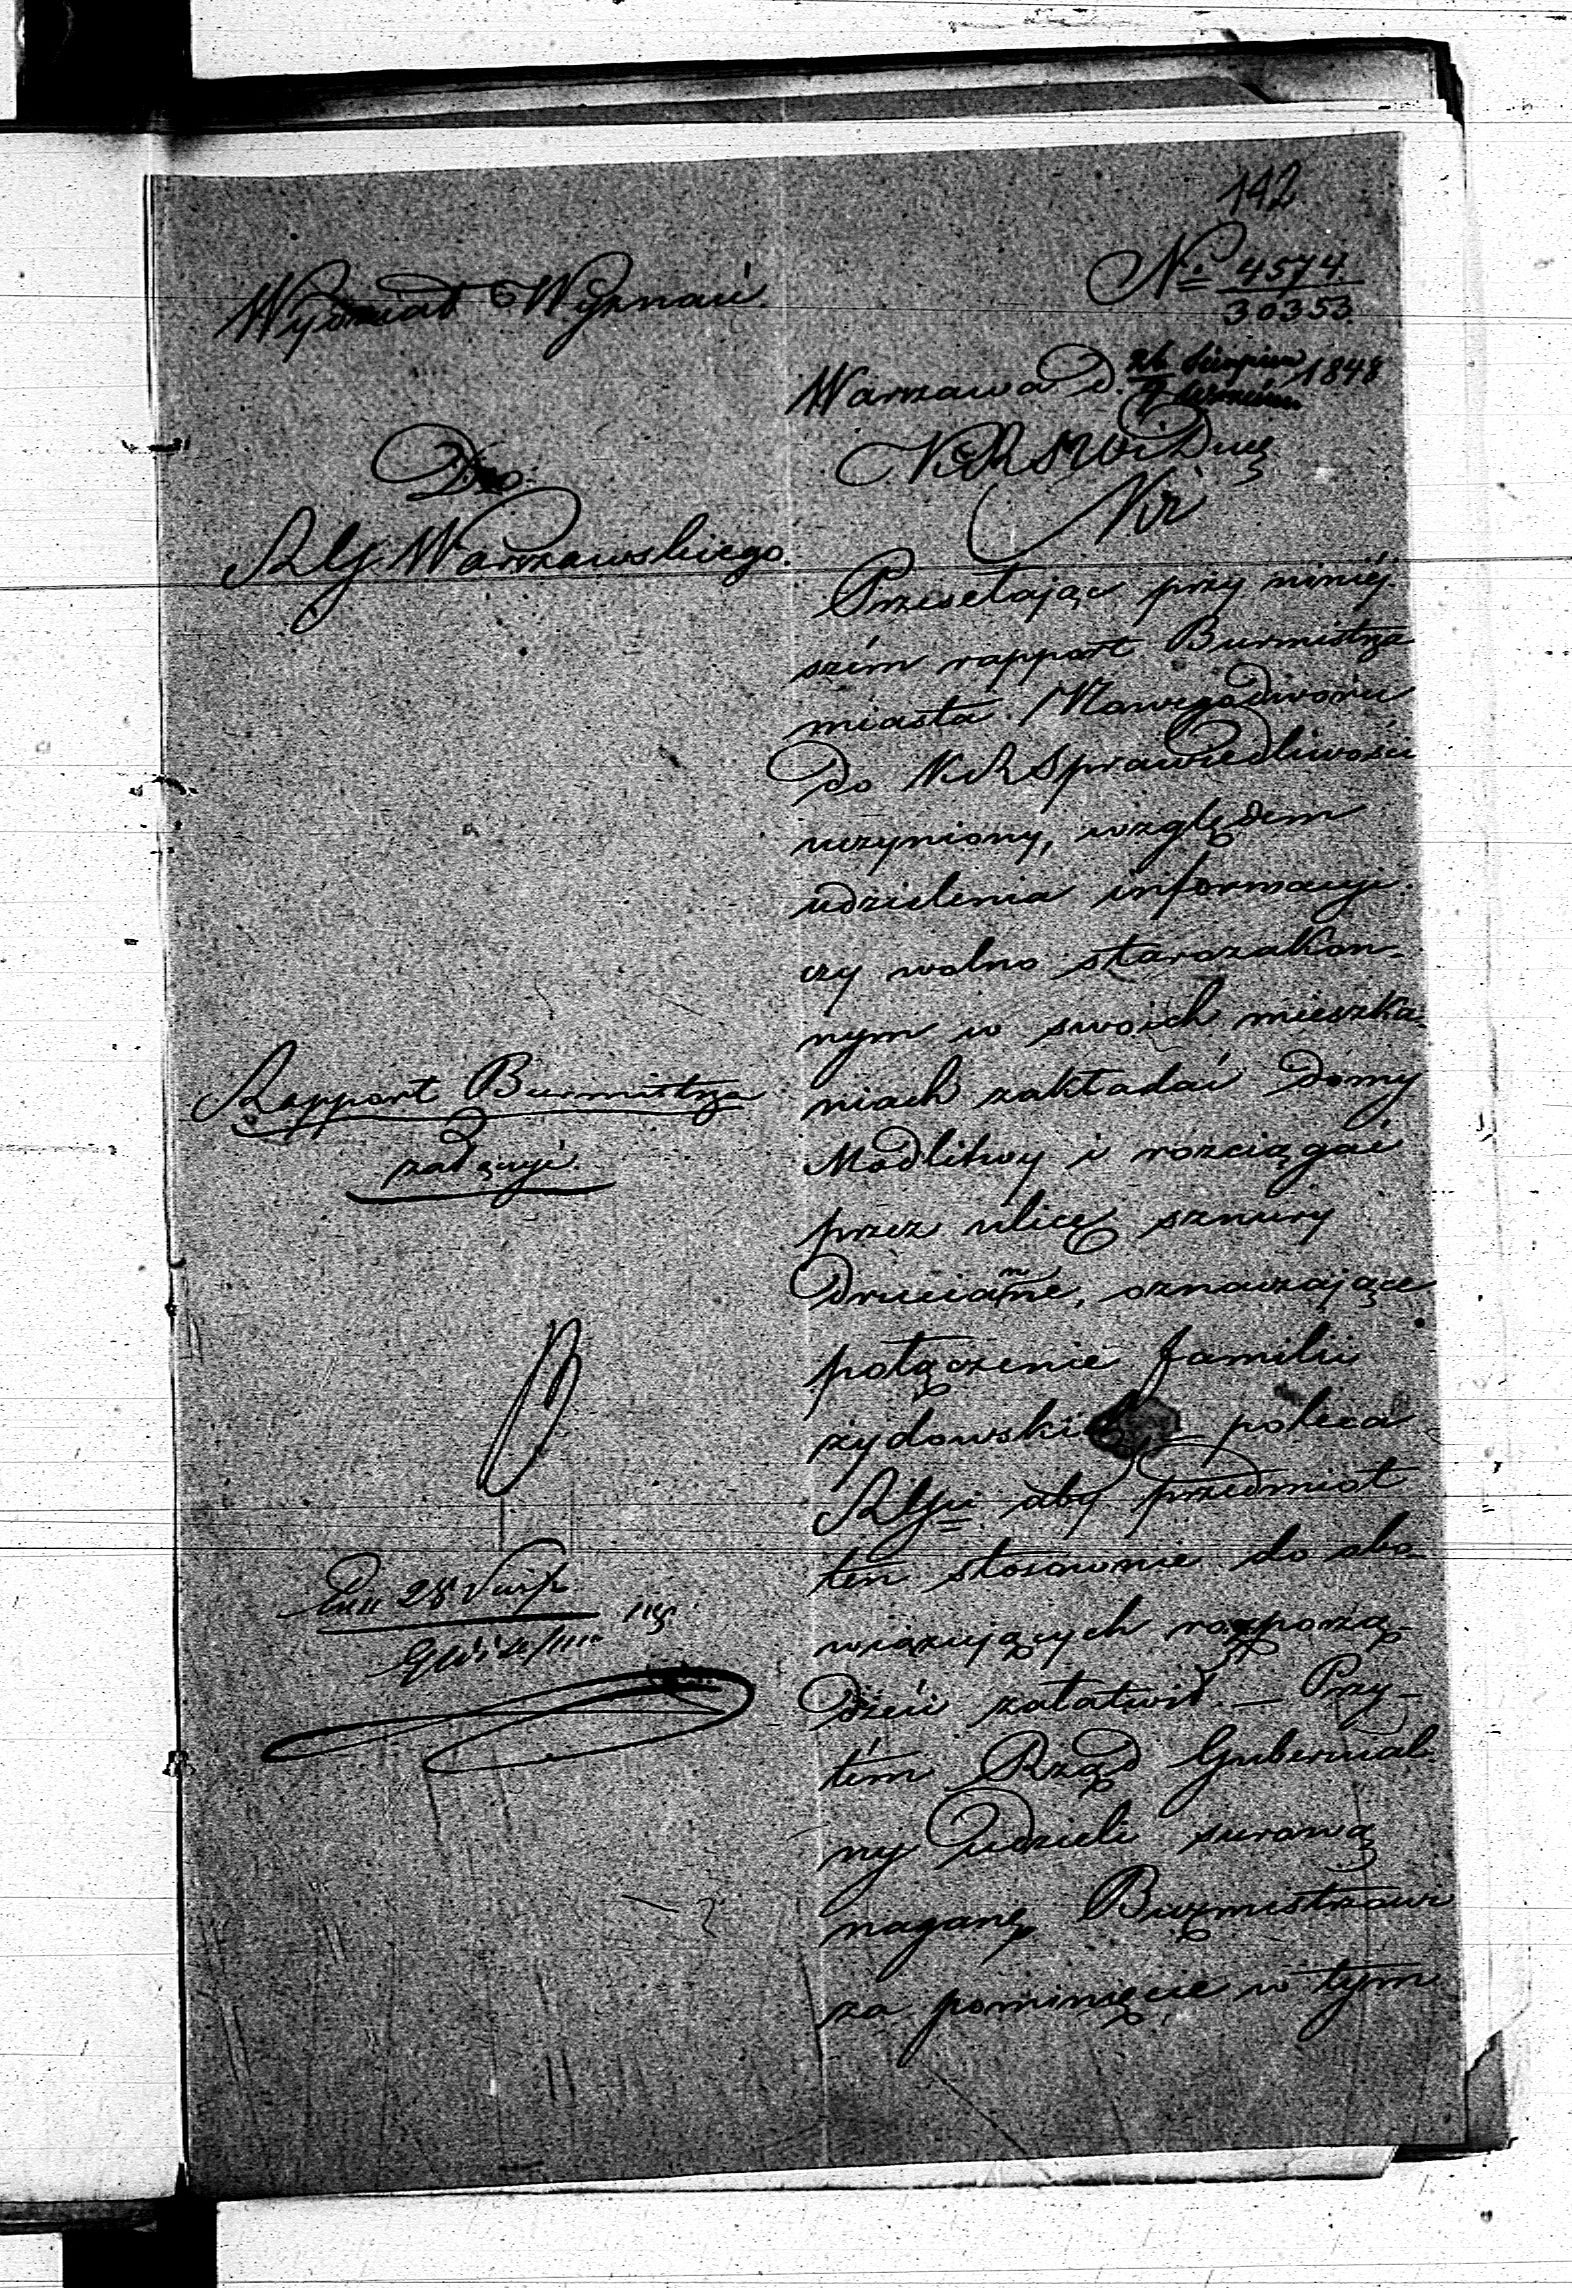 142
Wydział Wyznań
№ 4574.
30353.
Warszawa d. 26 Sierpnia 1848
7 Września
Do
KRSWiDuch
R.G. Warszawskiego.
Przesełając przy niniéj-
szém rapport Burmistrza
miasta Nowegodworu
do KRSprawiedliwości
uczyniony, względem
udzielenia informacyi.
czy wolno starozakon-
nym w swoich mieszka-
niach zakładać Domy
Modlitwy i rozciągać
przez ulicę sznury
druciane, oznaczające
połączenie familii
żydowskich poleca
aby przedmiot
ten stosownie do obo-
wiązujących rozporzą-
dzeń załatwił. — Przy-
tém Rząd Gubernial-
ny udzieli surową
naganę Burmistrzowi
za pominięcie w tym
Rapport Burmistrza
załączyć.
28 Sierp